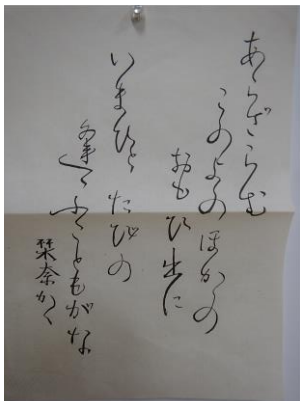 あらざらむ
このよのほかの
おもひ出に
いまひとたびの
逢ふこともがな
栞奈かく